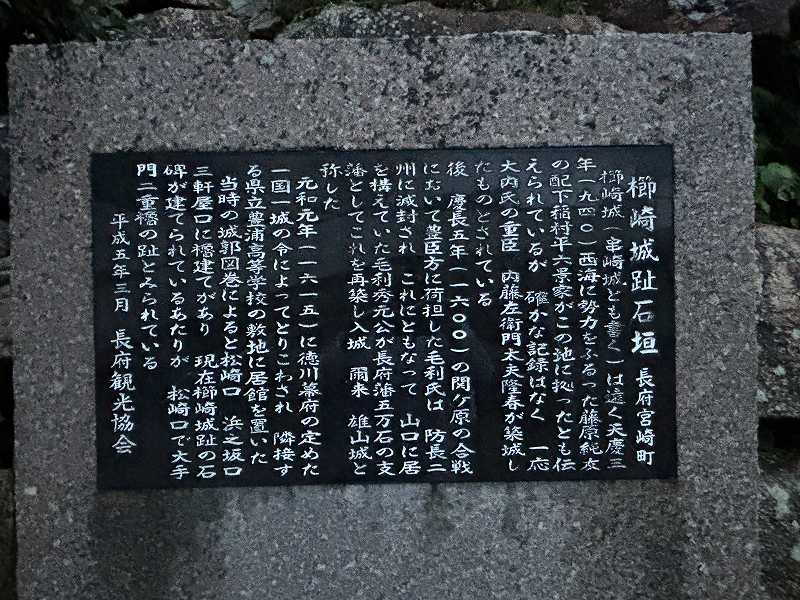 櫛崎城趾石垣 長府宮崎町
櫛崎城(串崎城とも書く)は遠く天慶三
年(九四〇)西海に勢力をふるった藤原純友
の配下稲村平六景家がこの地に拠ったとも伝
えられているが 確かな記録はなく 一応
大内氏の重臣 内藤左衛門太夫隆春が築城し
たものとされている
後 慶長五年(一六〇〇)の関ケ原の合戦
において豊臣方に荷担した毛利氏は 防長二
州に減封され これにともなって 山口に居
を構えていた毛利秀元公が長府藩五万石の支
藩としてこれを再築し入城 爾来 雄山城と
称した
元和元年(一六一五)に徳川幕府の定めた
一国一城の令によってとりこわされ 隣接す
る県立豊浦高等学校の敷地に居館を置いた
当時の城郭図巻によると松崎口 浜之坂口
三軒屋口に櫓建てがあり 現在櫛崎城趾の石
碑が建てられているあたりが 松崎口で大手
門二重櫓の趾とみられている
平成五年三月 長府観光協会